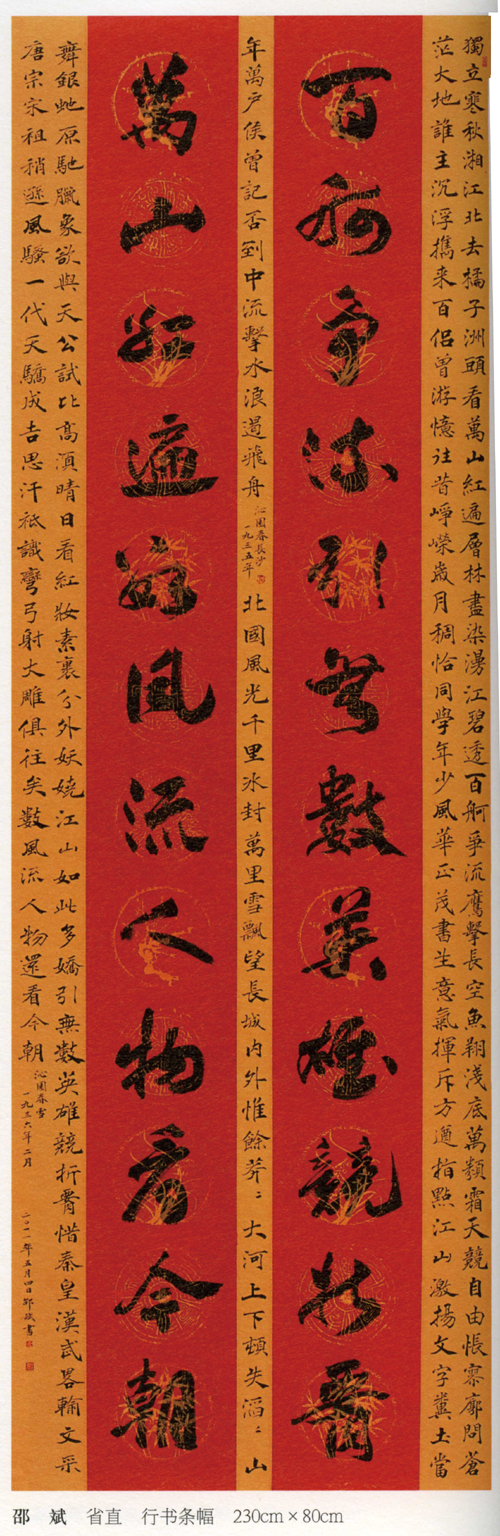 獨立寒秋湘江北去橘子洲頭看萬山紅遍層林盡染漫江碧透百舸爭流鷹擊長空魚翔淺底萬類霜天競自由悵寥廓問蒼
茫大地誰主沉浮攜来百侣曾游憶往昔崢嶸歲月稠恰同學年少風華正茂書生意氣揮斥方遒指點江山激揚文字糞土當
百舸争流引无數英雄競折腰
年萬戶侯曾記否到中流擊水浪遏飛舟
沁園春長沙
一九二五年
北國風光千里冰封萬里雪飄望長城内外惟餘莽々大河上下頓失滔々山
萬山红遍好风流人物看今朝
舞銀虵原馳臘象欲與天公試比高須晴日看紅妝素裹分外妖嬈江山如此多嬌引無數英雄競折腰惜秦皇漢武畧輸文采
唐宗宋祖稍遜風騷一代天驕成吉思汗祗識彎弓射大雕俱往矣數風流人物還看今朝
沁園春雪
一九三六年二月
二〇一一年五月四日邵斌書
邵 斌 省直 行书条幅 230cm×80cm